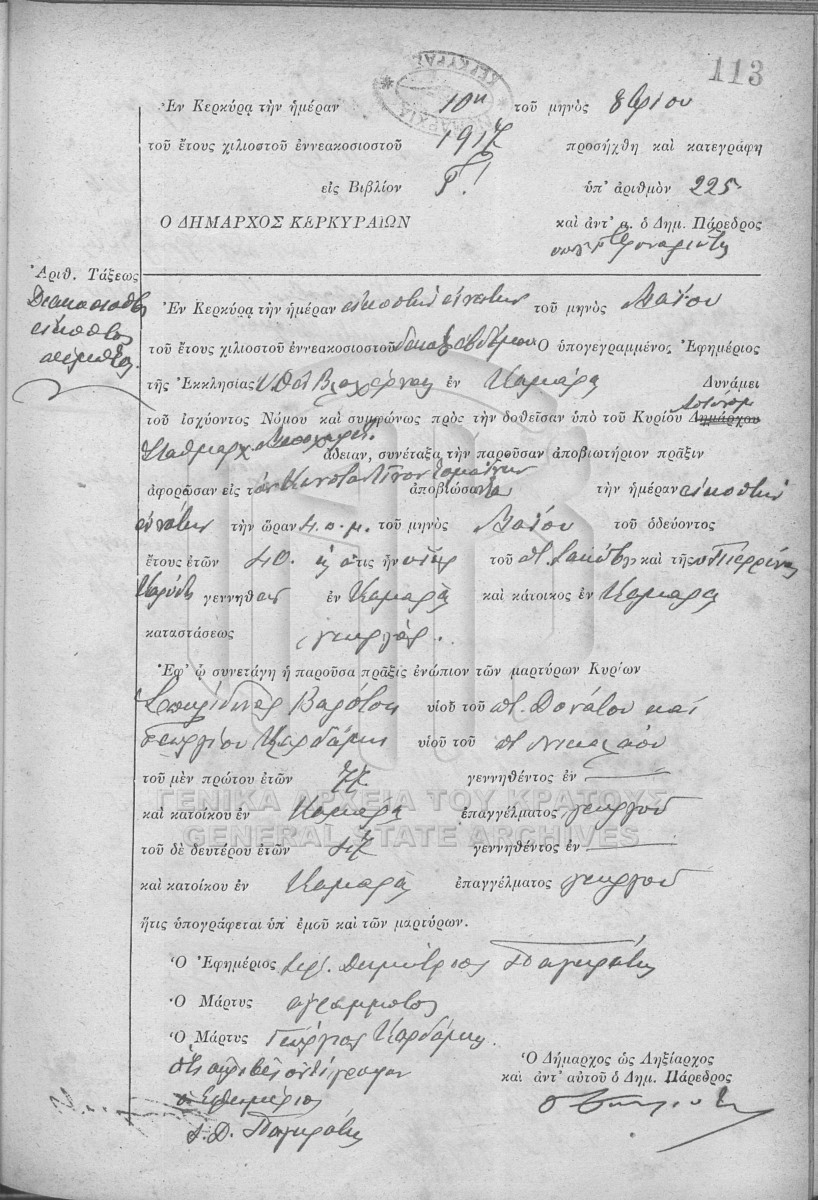 113
Ἐν Κερκύρᾳ τὴν ἡμέραν 10ην τοῦ μηνὸς 8βρίου
τοῦ ἔτους χιλιοστοῦ ἐννεακοσιοστοῦ 1917 προσήχθη καὶ κατεγράφη
εἰς Βιβλίον ὑπ' ἀριθμὸν 225
Ο ΔΗΜΑΡΧΟΣ ΚΕΡΚΥΡΑΙΩΝ καὶ ἀντ' α. ὁ Δημ. Πάρεδρος
Ἀριθ. Τάξεως
Διακοσιοστὸς
εἰκοστὸς
πέμπτος.
Ἐν Κερκύρᾳ τὴν ἡμέραν εἰκοστὴν ἐνάτην τοῦ μηνὸς Μαΐου
τοῦ ἔτους χιλιοστοῦ ἐννεακοσιοστοῦ δεκάτου ἑβδόμου Ὁ ὑπογεγραμμένος Ἐφημέριος
τῆς Ἐκκλησίας Βλαχέρνας ἐν Καμάρᾳ Δυνάμει
τοῦ ἰσχύοντος Νόμου καὶ συμφώνως πρὸς τὴν δοθεῖσαν ὑπὸ τοῦ Κυρίου Δημάρχου
ἄδειαν, συνέταξα τὴν παροῦσαν ἀποβιωτήριον πρᾶξιν
ἀφορῶσαν εἰς τὸν Κωνσταντῖνον ἀποβιώσαντα τὴν ἡμέραν εἰκοστὴν
ἐνάτην τὴν ὥραν 4 π.μ. τοῦ μηνὸς Μαΐου τοῦ ὁδεύοντος
ἔτους ἐτῶν ὅστις ἦν υἱὸς τοῦ καὶ τῆς
γεννηθεὶς ἐν Καμάρᾳ καὶ κάτοικος ἐν Καμάρᾳ
καταστάσεως γεωργὸς.
Ἐφ' ᾧ συνετάγη ἡ παροῦσα πρᾶξις ἐνώπιον τῶν μαρτύρων Κυρίων
Σπυρίδωνος υἱοῦ τοῦ π. Δονάτου καὶ
Γεωργίου Καρδάμη υἱοῦ τοῦ π. Νικολάου
τοῦ μὲν πρώτου ἐτῶν γεννηθέντος ἐν
καὶ κατοίκου ἐν Καμάρᾳ ἐπαγγέλματος γεωργοῦ
τοῦ δὲ δευτέρου ἐτῶν 47 γεννηθέντος ἐν
καὶ κατοίκου ἐν Καμάρᾳ ἐπαγγέλματος γεωργοῦ
ἥτις ὑπογράφεται ὑπ' ἐμοῦ καὶ τῶν μαρτύρων.
Ὁ Ἐφημέριος Δημήτριος Παγκράτης
Ὁ Μάρτυς ἀγράμματος
Ὁ Μάρτυς Γεώργιος Καρδάμης
Ὅτι ἀκριβὲς ἀντίγραφον
ὁ Ἐφημέριος
Δ. Παγκράτης
Ὁ Δήμαρχος ὡς Ληξίαρχος
καὶ ἀντ' αὐτοῦ ὁ Δημ. Πάρεδρος
ΓΕΝΙΚΑ ΑΡΧΕΙΑ ΤΟΥ ΚΡΑΤΟΥΣ
GENERAL STATE ARCHIVES